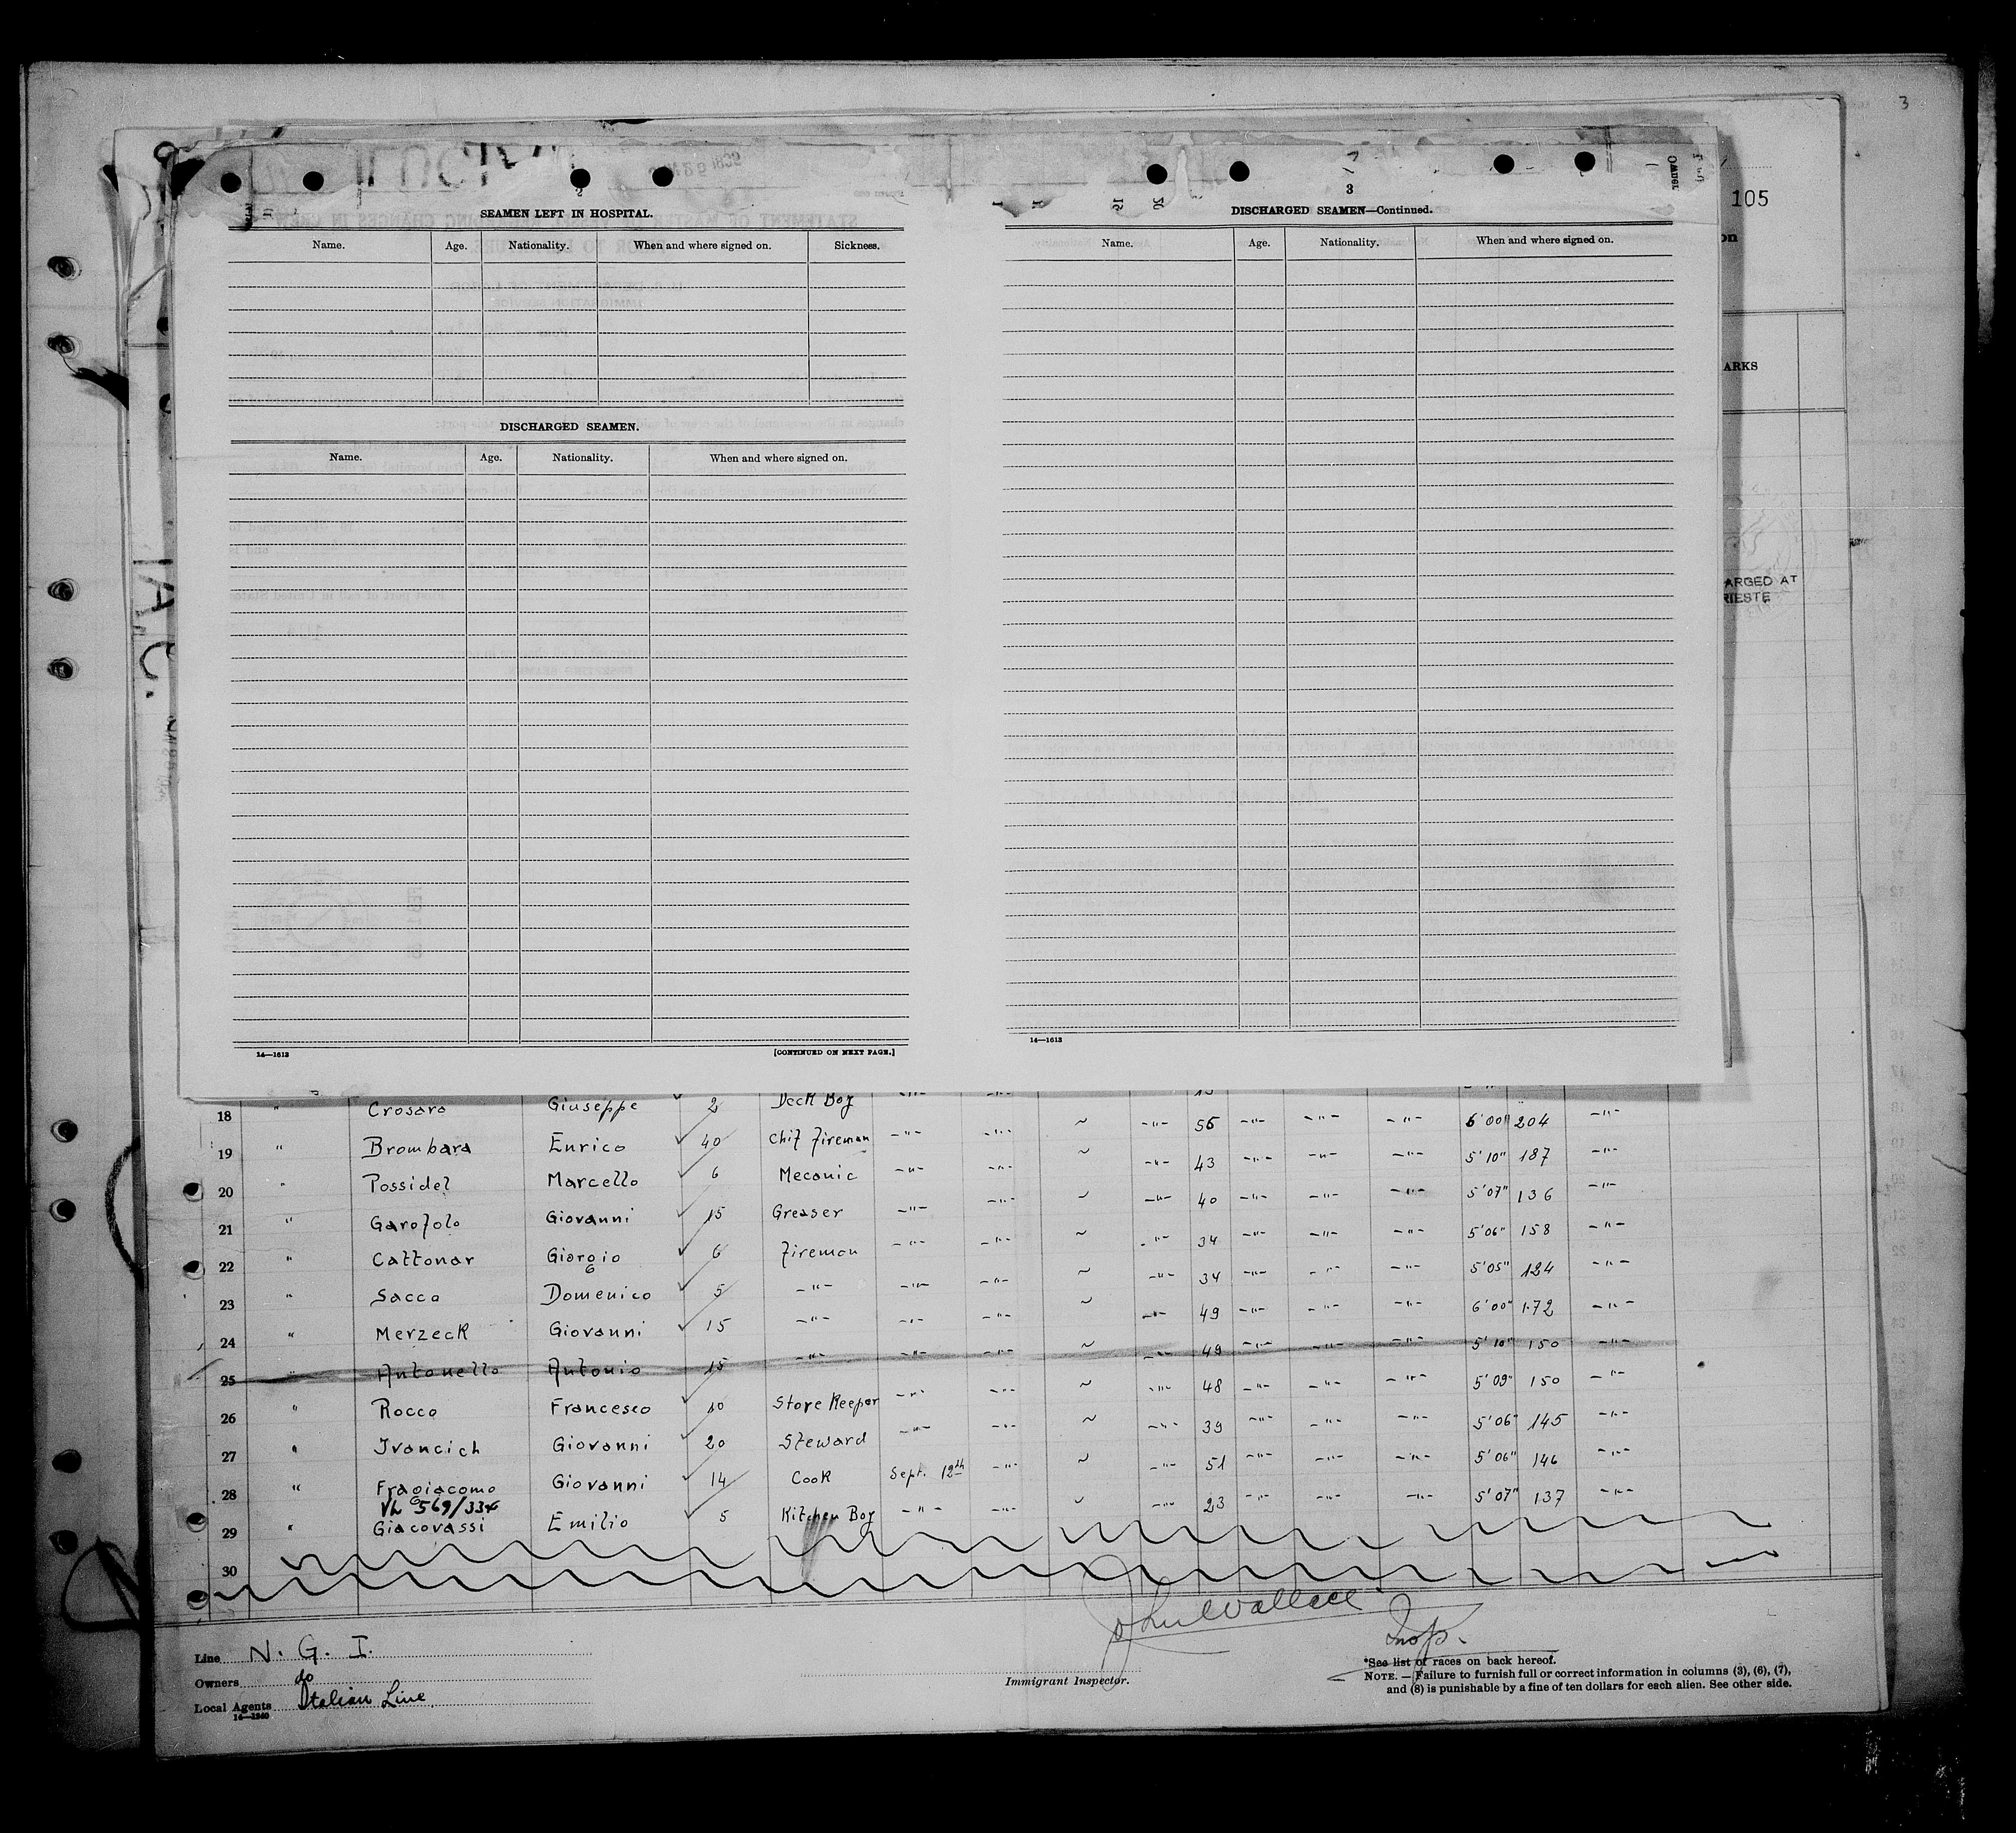 3
105
ARKS
ARGED AT
RIESTE
2
SEAMEN LEFT IN HOSPITAL.
Name. Age. Nationality. When and where signed on. Sickness.
DISCHARGED SEAMEN.
Name. Age. Nationality. When and where signed on.
14—1613 [CONTINUED ON NEXT PAGE.]
3
DISCHARGED SEAMEN—Continued.
Name. Age. Nationality. When and where signed on.
14—1613
18 " Crosara Giuseppe 2 Deck Boy
19 " Brombara Enrico 40 Chif Fireman -"- -"- ~ -"- 56 -"- -"- -"- 6'00" 204 -"-
20 " Possidel Marcello 6 Mecanic -"- -"- ~ -"- 43 -"- -"- -"- 5'10" 187 -"-
21 " Garofolo Giovanni 15 Greaser -"- -"- ~ -"- 40 -"- -"- -"- 5'07" 136 -"-
22 " Cattonar Giorgio 6 Fireman -"- -"- ~ -"- 34 -"- -"- -"- 5'06" 158 -"-
23 " Sacco Domenico 5 -"- -"- -"- ~ -"- 34 -"- -"- -"- 5'05" 124 -"-
24 " Merzeck Giovanni 15 -"- -"- -"- ~ -"- 49 -"- -"- -"- 6'00" 172 -"-
25 " Antonello Antonio 15 -"- -"- -"- ~ -"- 49 -"- -"- -"- 5'10" 150 -"-
26 " Rocco Francesco 10 Store Keeper -"- -"- ~ -"- 48 -"- -"- -"- 5'09" 150 -"-
27 " Ivancich Giovanni 20 Steward -"- -"- ~ -"- 39 -"- -"- -"- 5'06" 145 -"-
28 " Fragiacomo Giovanni 14 Cook Sept. 12th -"- ~ -"- 51 -"- -"- -"- 5'06" 146 -"-
29 " Giacovassi Emilio 5 Kitchen Boy -"- -"- ~ -"- 23 -"- -"- -"- 5'07" 137 -"-
30
John Wallace
Insp.
Line N. G. I.
Owners do
Local Agents Italian Line
14—1240
Immigrant Inspector.
*See list of races on back hereof.
NOTE. — Failure to furnish full or correct information in columns (3), (6), (7),
and (8) is punishable by a fine of ten dollars for each alien. See other side.